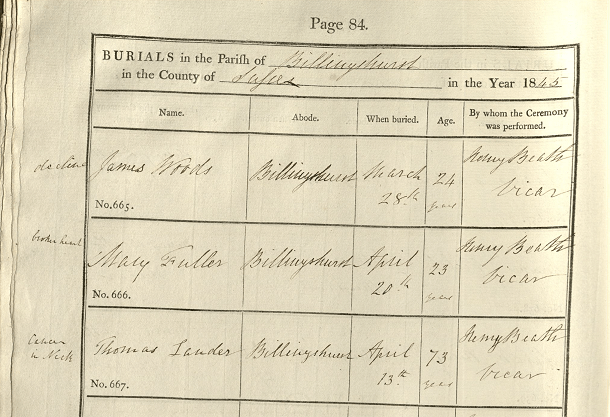 Page 84.
BURIALS in the Parish of Billingshurst
in the County of Sussex in the Year 1845
Name. Abode. When buried. Age. By whom the Ceremony was performed.
decline James Woods Billingshurst March 28th 24 years Henry Beath Vicar
No. 665.
broken heart Mary Fuller Billingshurst April 20th 23 years Henry Beath Vicar
No. 666.
Cancer in Neck Thomas Lander Billingshurst April 13th 73 years Henry Beath Vicar
No. 667.